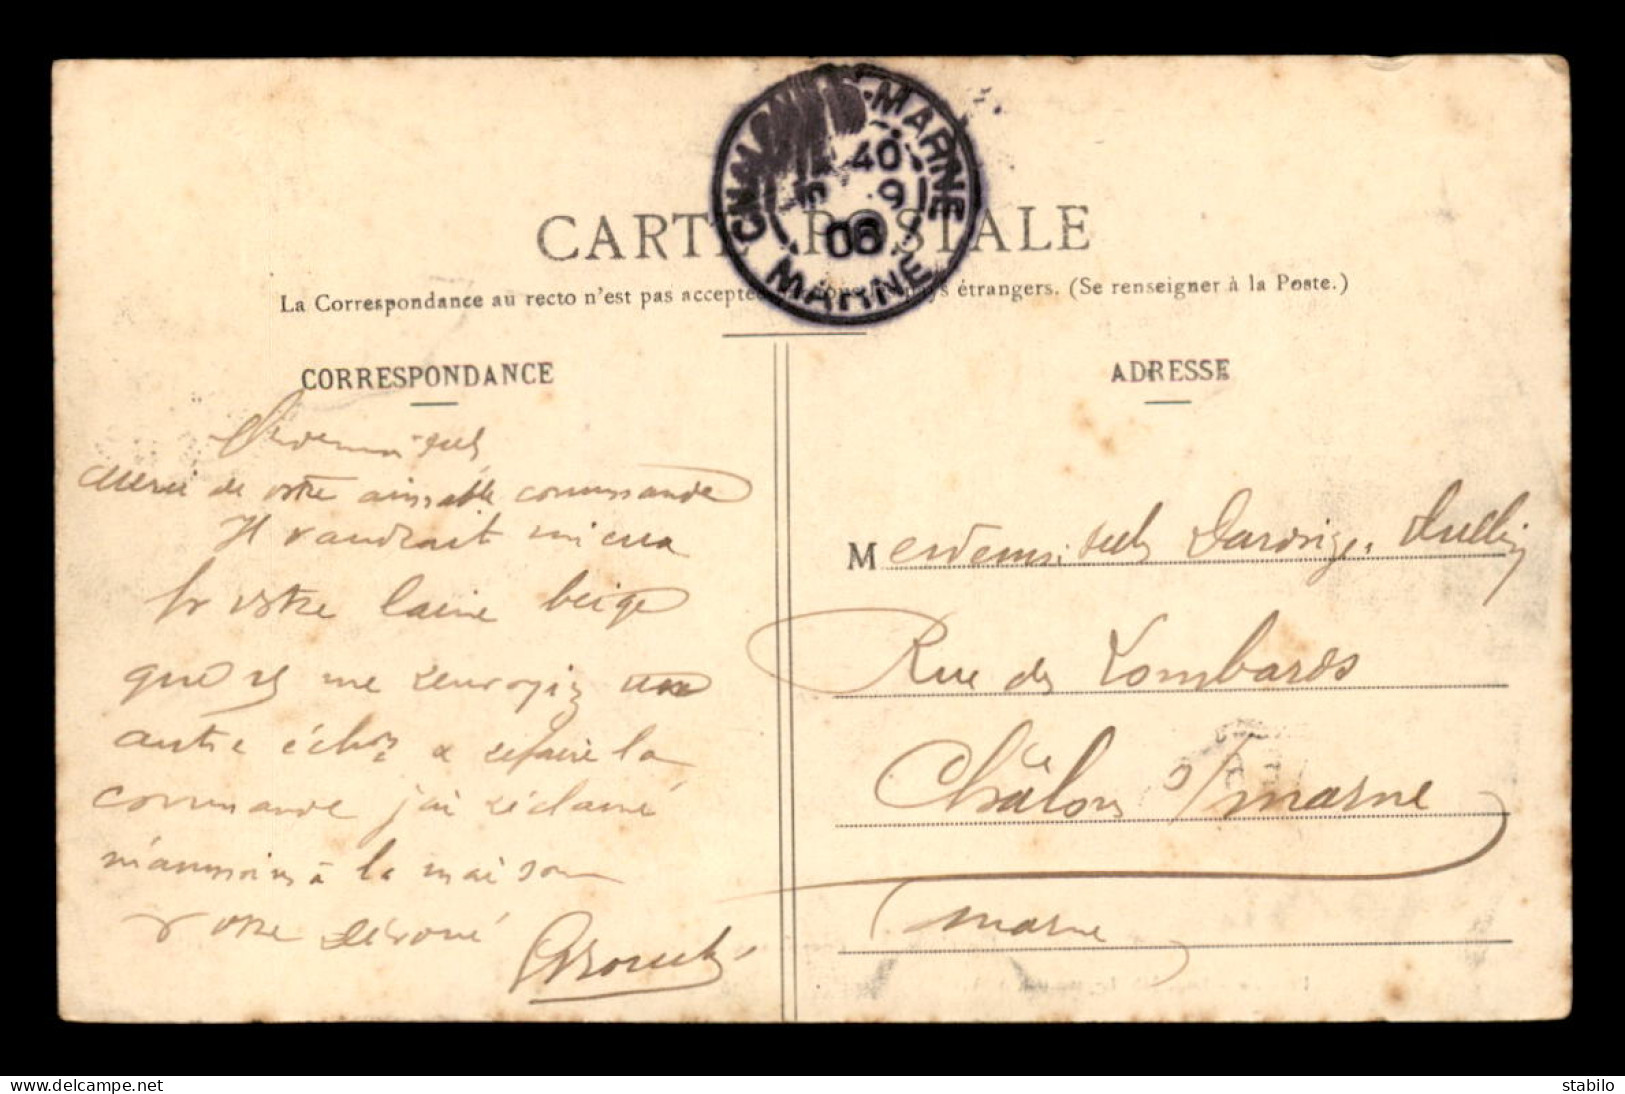 MARNE
40
9
06
MARNE
CARTE POSTALE
La Correspondance au recto n'est pas acceptée étrangers. (Se renseigner à la Poste.)
CORRESPONDANCE
merci de votre aimable commande
Il vaudrait mieux
pr votre laine beige
que vs me renvoyiez un
autre échon & refaire la
commande j'ai réclamé
néanmoins à la maison
votre dévoué
ADRESSE
Mesdemoiselles
Rue des Lombards
Châlons s/ marne
marne
stabilo